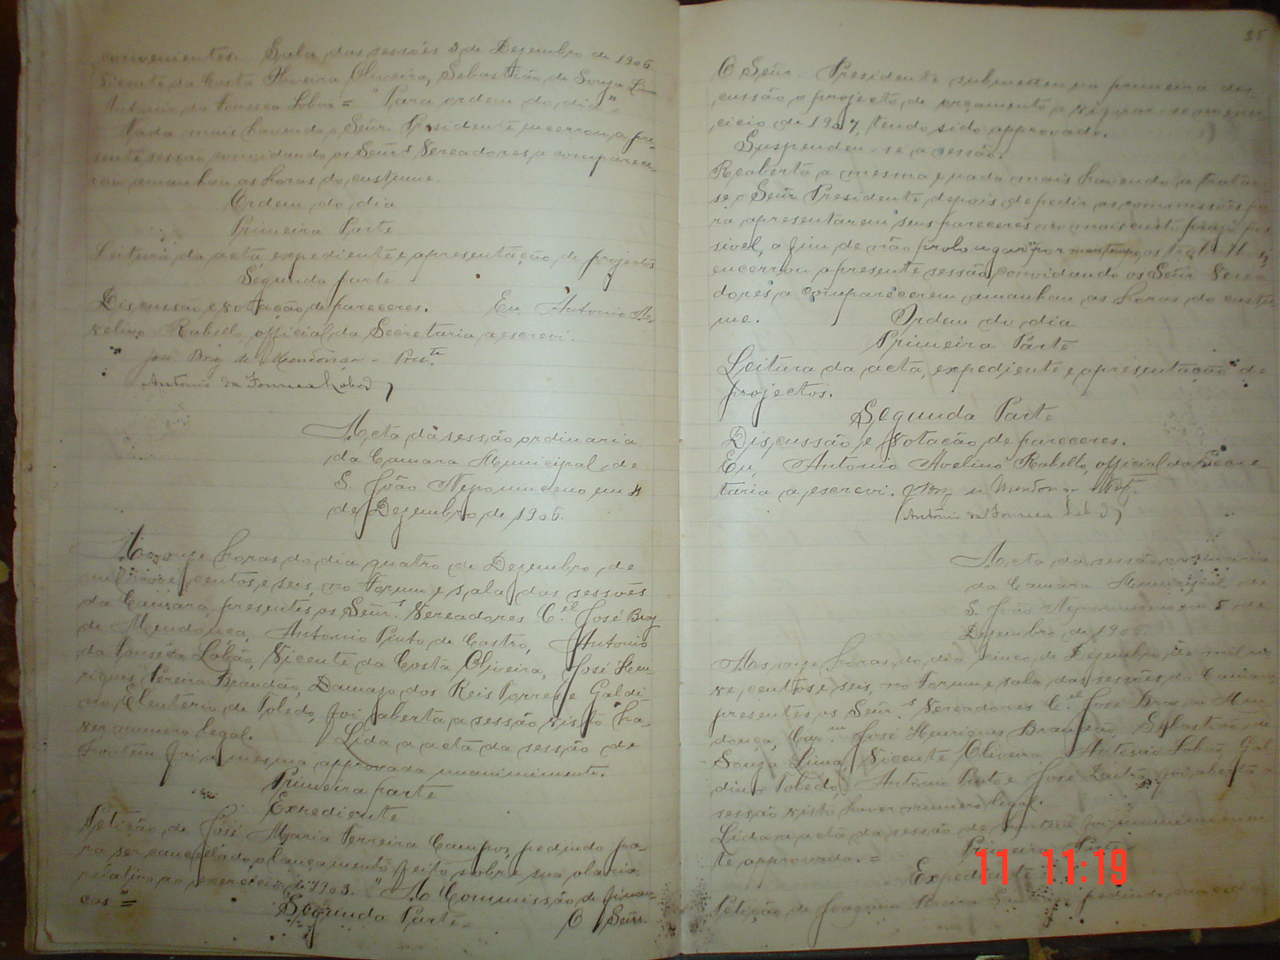 convenientes. Sala das sessões 3 de Dezembro de 1906
Vicente da Costa Oliveira, Sebastião de Souza Lima
Antonio da Fonseca Lobão = "Para ordem do dia"
Nada mais havendo o Señr. Presidente encerrou a pre-
sente sessão, convidando os Señrs Vereadores a comparece-
rem amanhan as horas do custume.
Ordem do dia
Primeira Parte
Leitura da acta, expediente e apresentação de projectos
Segunda parte
Discussão e votação de pareceres. Eu, Antonio A-
velino Rabello, official da Secretaria a escrevi.
José Braz de Mendonça - Preste
Antonio da Fonseca Lobão
Acta da sessão ordinaria
da Camara Municipal de
S. João Nepomuceno em 4
de Dezembro de 1906.
As onze horas do dia quatro de Dezembro de
mil nove centos e seis, no Forum e sala das sessões
da Camara, presentes os Señrs. Vereadores Cel José Braz
de Mendonça, Antonio Pinto de Castro, Antonio
da Fonseca Lobão, Vicente da Costa Oliveira, José Hen-
riques Pereira Brandão, Damaso dos Reis Torres e Galdi-
no Eleutério de Toledo, foi aberta a sessão visto ha-
ver numero legal. Lida a acta da sessão de
hontem foi a mesma approvada unanimimente.
Primeira parte
Expediente
Petição de José Maria Ferreira Campos, pedindo pa-
ra ser cancelado o lançamento feito sobre sua olaria
relativo ao exercicio de 1903. "A Commissão de finan-
ças =
Segunda Parte- O Señr.
25
O Señr. Presidente submetteu em primeira dis-
cussão o projecto de orçamento a vigorar-se no exer-
cicio de 1907, tendo sido approvado.
Suspendeu-se a sessão.
Reaberta a mesma e nada mais havendo a tratar-
se o Señr Presidente depois de pedir as commissões pa-
ra apresentarem seus pareceres no mais curto praso pos-
sivel, a fim de não prolongar por mais tempo os trabalhos,
encerrou a presente sessão, convidando os Señr Verea-
dores, a comparecerem amanhan as horas do custu-
me. Ordem do dia
Primeira Parte
Leitura da acta, expediente e apresentação de
projectos.
Segunda Parte
Discussão e votação de pareceres.
Eu, Antonio Avelino Rabello, official da Secre-
taria a escrevi. Braz de Mendonça - Prste.
Antonio da Fonseca Lobão
Acta da sessão ordinaria
da Camara Municipal de
S. João Nepomuceno em 5 de
Dezembro de 1906.
As onze horas, do dia cinco de Dezembro de mil no-
ve centos e seis, no Forum e sala das sessões da Camara,
presentes os Señrs Vereadores Cel José Braz de Men-
donça, Capm José Henriques Brandão, Sebastião de
Souza Lima, Vicente Oliveira, Antonio Lobão, Gal-
dino Toledo, Antonio Pinto e José foi aberta a
sessão visto haver numero legal.
Lida a acta da sessão de hontem foi unanimimen-
te approvada. =
Primeira Parte
Expediente
Petição de Joaquim Pereira pedindo
11 11:19